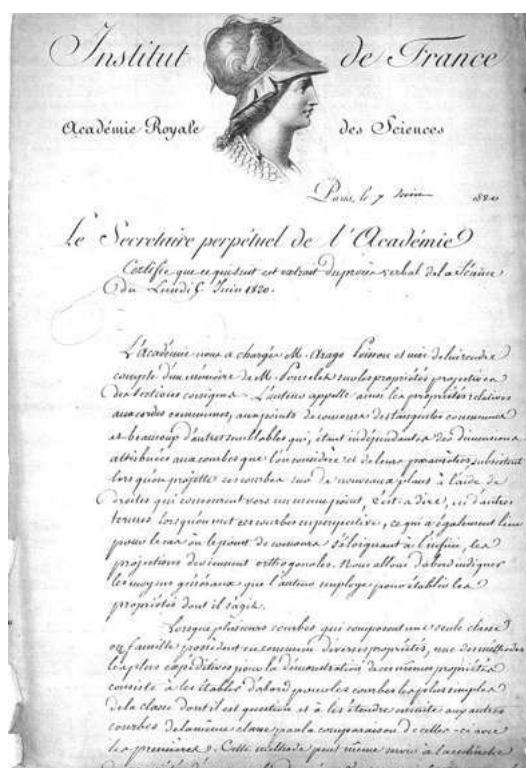 Institut de France
Académie Royale des Sciences
Paris, le 7 Juin 1820
Le Secrétaire perpétuel de l'Académie
Certifie que ce qui suit est extrait du procès verbal de la Séance
du Lundi 5 Juin 1820.
L'académie nous a chargés M. Arago Poisson et moi de lui rendre
compte d'un mémoire de M. Poncelet sur les propriétés projectives
des sections coniques. L'auteur appelle ainsi les propriétés relatives
aux cordes communes, aux points de concours des tangentes communes
et beaucoup d'autres semblables qui, étant indépendantes des dimensions
attribuées aux courbes que l'on considère et de leurs paramètres, subsistent
lorsqu'on projette ces courbes sur de nouveaux plans à l'aide de
droites qui concourent vers un même point, c'est-à-dire, en d'autres
termes lorsqu'on met ces courbes en perspective, ce qui a également lieu
pour le cas où le point de concours s'éloignant à l'infini, les
projections deviennent orthogonales. Nous allons d'abord indiquer
les moyens généraux que l'auteur emploie pour établir les
propriétés dont il s'agit.
Lorsque plusieurs courbes qui composent une seule classe
ou famille possèdent en commun diverses propriétés, une des méthodes
les plus expéditives pour la démonstration de ces mêmes propriétés
consiste à les établir d'abord pour les courbes les plus simples
de la classe dont il est question et à les étendre ensuite aux autres
courbes de la même classe par la comparaison de celles-ci avec
les premières. Cette méthode peut même servir à la recherche